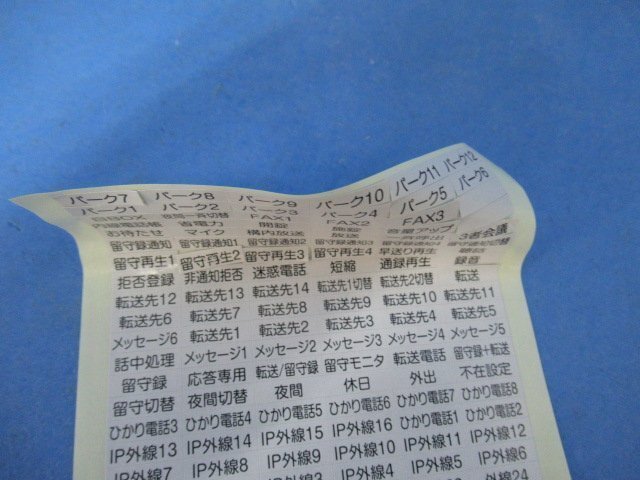 パーク7 パーク8 パーク9 パーク10 パーク11 パーク12
パーク1 パーク2 パーク3 パーク4 パーク5 パーク6
夜間一斉切替 FAX1 FAX2 FAX3
内線電話帳 省電力 開錠 施錠 音量アップ
お待たせ マイク 構内放送 放送 一斉呼出 3者会議
留守録通知 留守録通知1 留守録通知2 留守録通知3 留守録通知4 留守録通知切替
留守再生1 留守再生2 留守再生3 留守再生4 早送り再生 聴話
拒否登録 非通知拒否 迷惑電話 短縮 通録再生 録音
転送先12 転送先13 転送先14 転送先1切替 転送先2切替 転送
転送先6 転送先7 転送先8 転送先9 転送先10 転送先11
メッセージ6 転送先1 転送先2 転送先3 転送先4 転送先5
話中処理 メッセージ1 メッセージ2 メッセージ3 メッセージ4 メッセージ5
留守録 応答専用 転送/留守録 留守モニタ 転送電話 留守録+転送
留守切替 夜間切替 夜間 休日 外出 不在設定
ひかり電話3 ひかり電話4 ひかり電話5 ひかり電話6 ひかり電話7 ひかり電話8
IP外線13 IP外線14 IP外線15 IP外線16 ひかり電話1 ひかり電話2
IP外線7 IP外線8 IP外線9 IP外線10 IP外線11 IP外線12
IP外線4 IP外線5 IP外線6